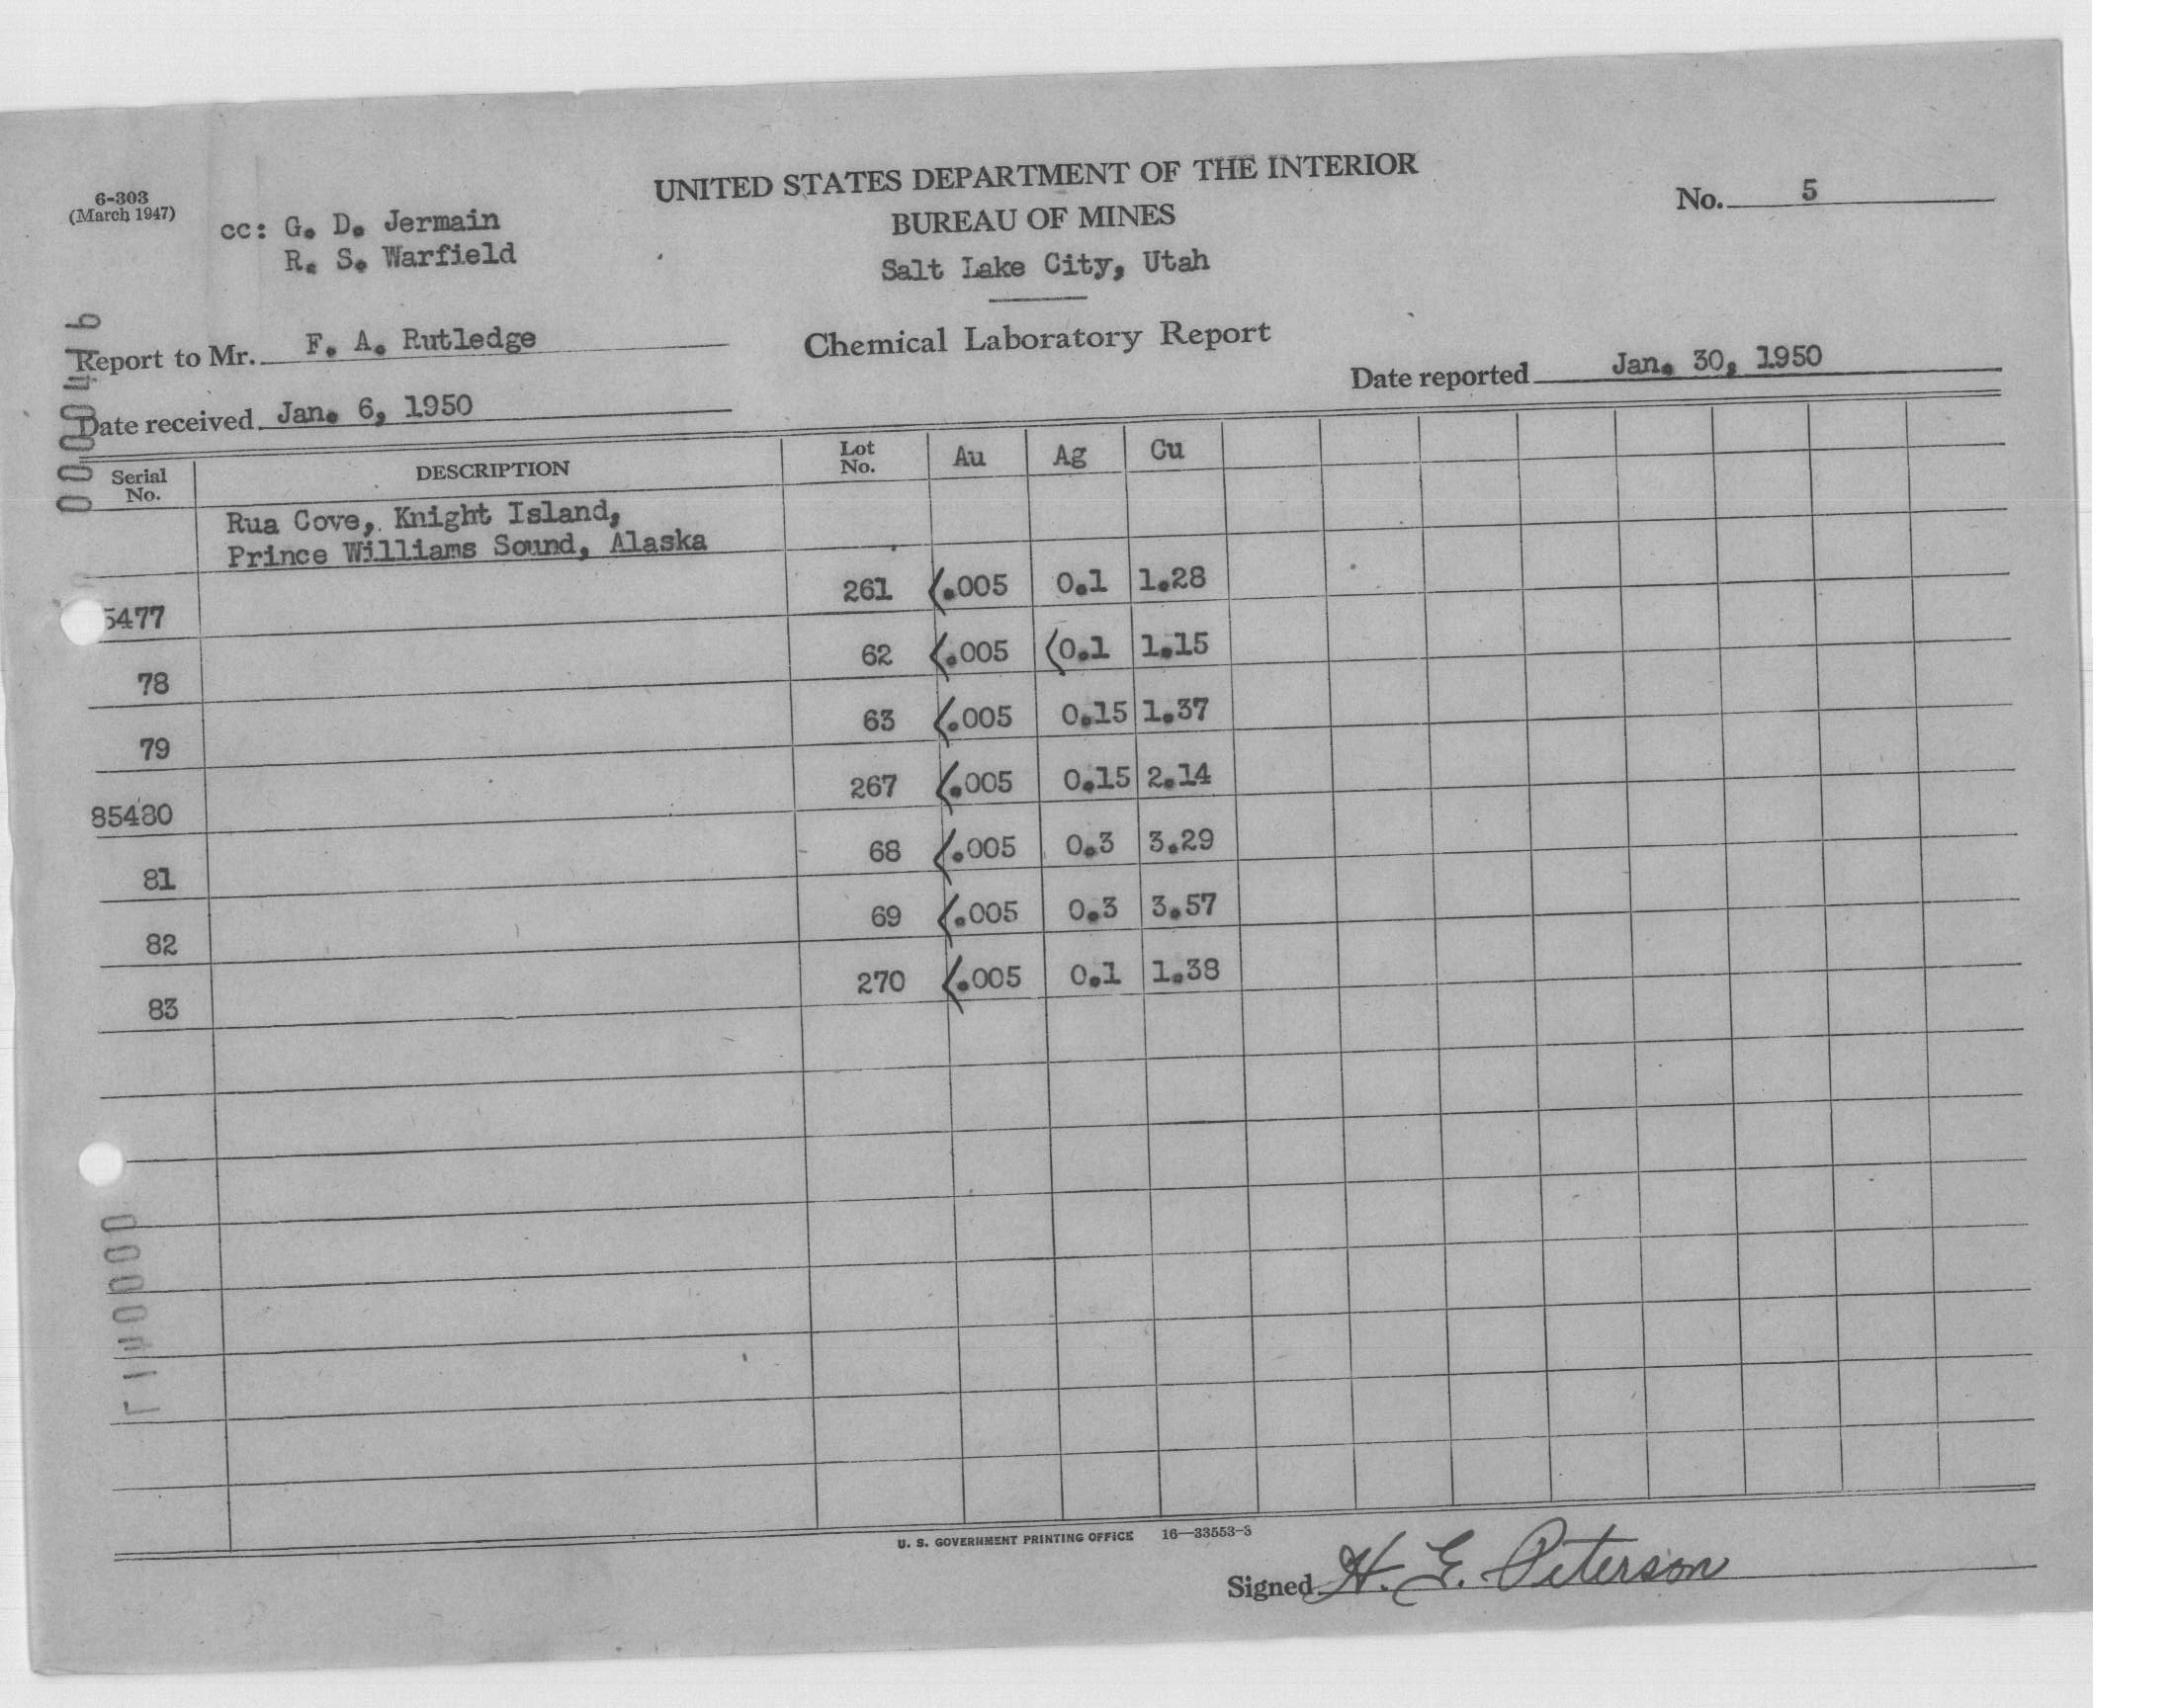 6-303
(March 1947)
cc: G. D. Jermain
R. S. Warfield
UNITED STATES DEPARTMENT OF THE INTERIOR
BUREAU OF MINES
Salt Lake City, Utah
No. 5
Report to Mr. F. A. Rutledge
Chemical Laboratory Report
Date reported Jan. 30, 1950
Date received Jan. 6, 1950
Serial No. DESCRIPTION Lot No. Au Ag Cu
Rua Cove, Knight Island,
Prince Williams Sound, Alaska
5477 261 <.005 0.1 1.28
78 62 <.005 <0.1 1.15
79 63 <.005 0.15 1.37
85480 267 <.005 0.15 2.14
81 68 <.005 0.3 3.29
82 69 <.005 0.3 3.57
83 270 <.005 0.1 1.38
U. S. GOVERNMENT PRINTING OFFICE 16—33553-3
Signed H. E. Peterson